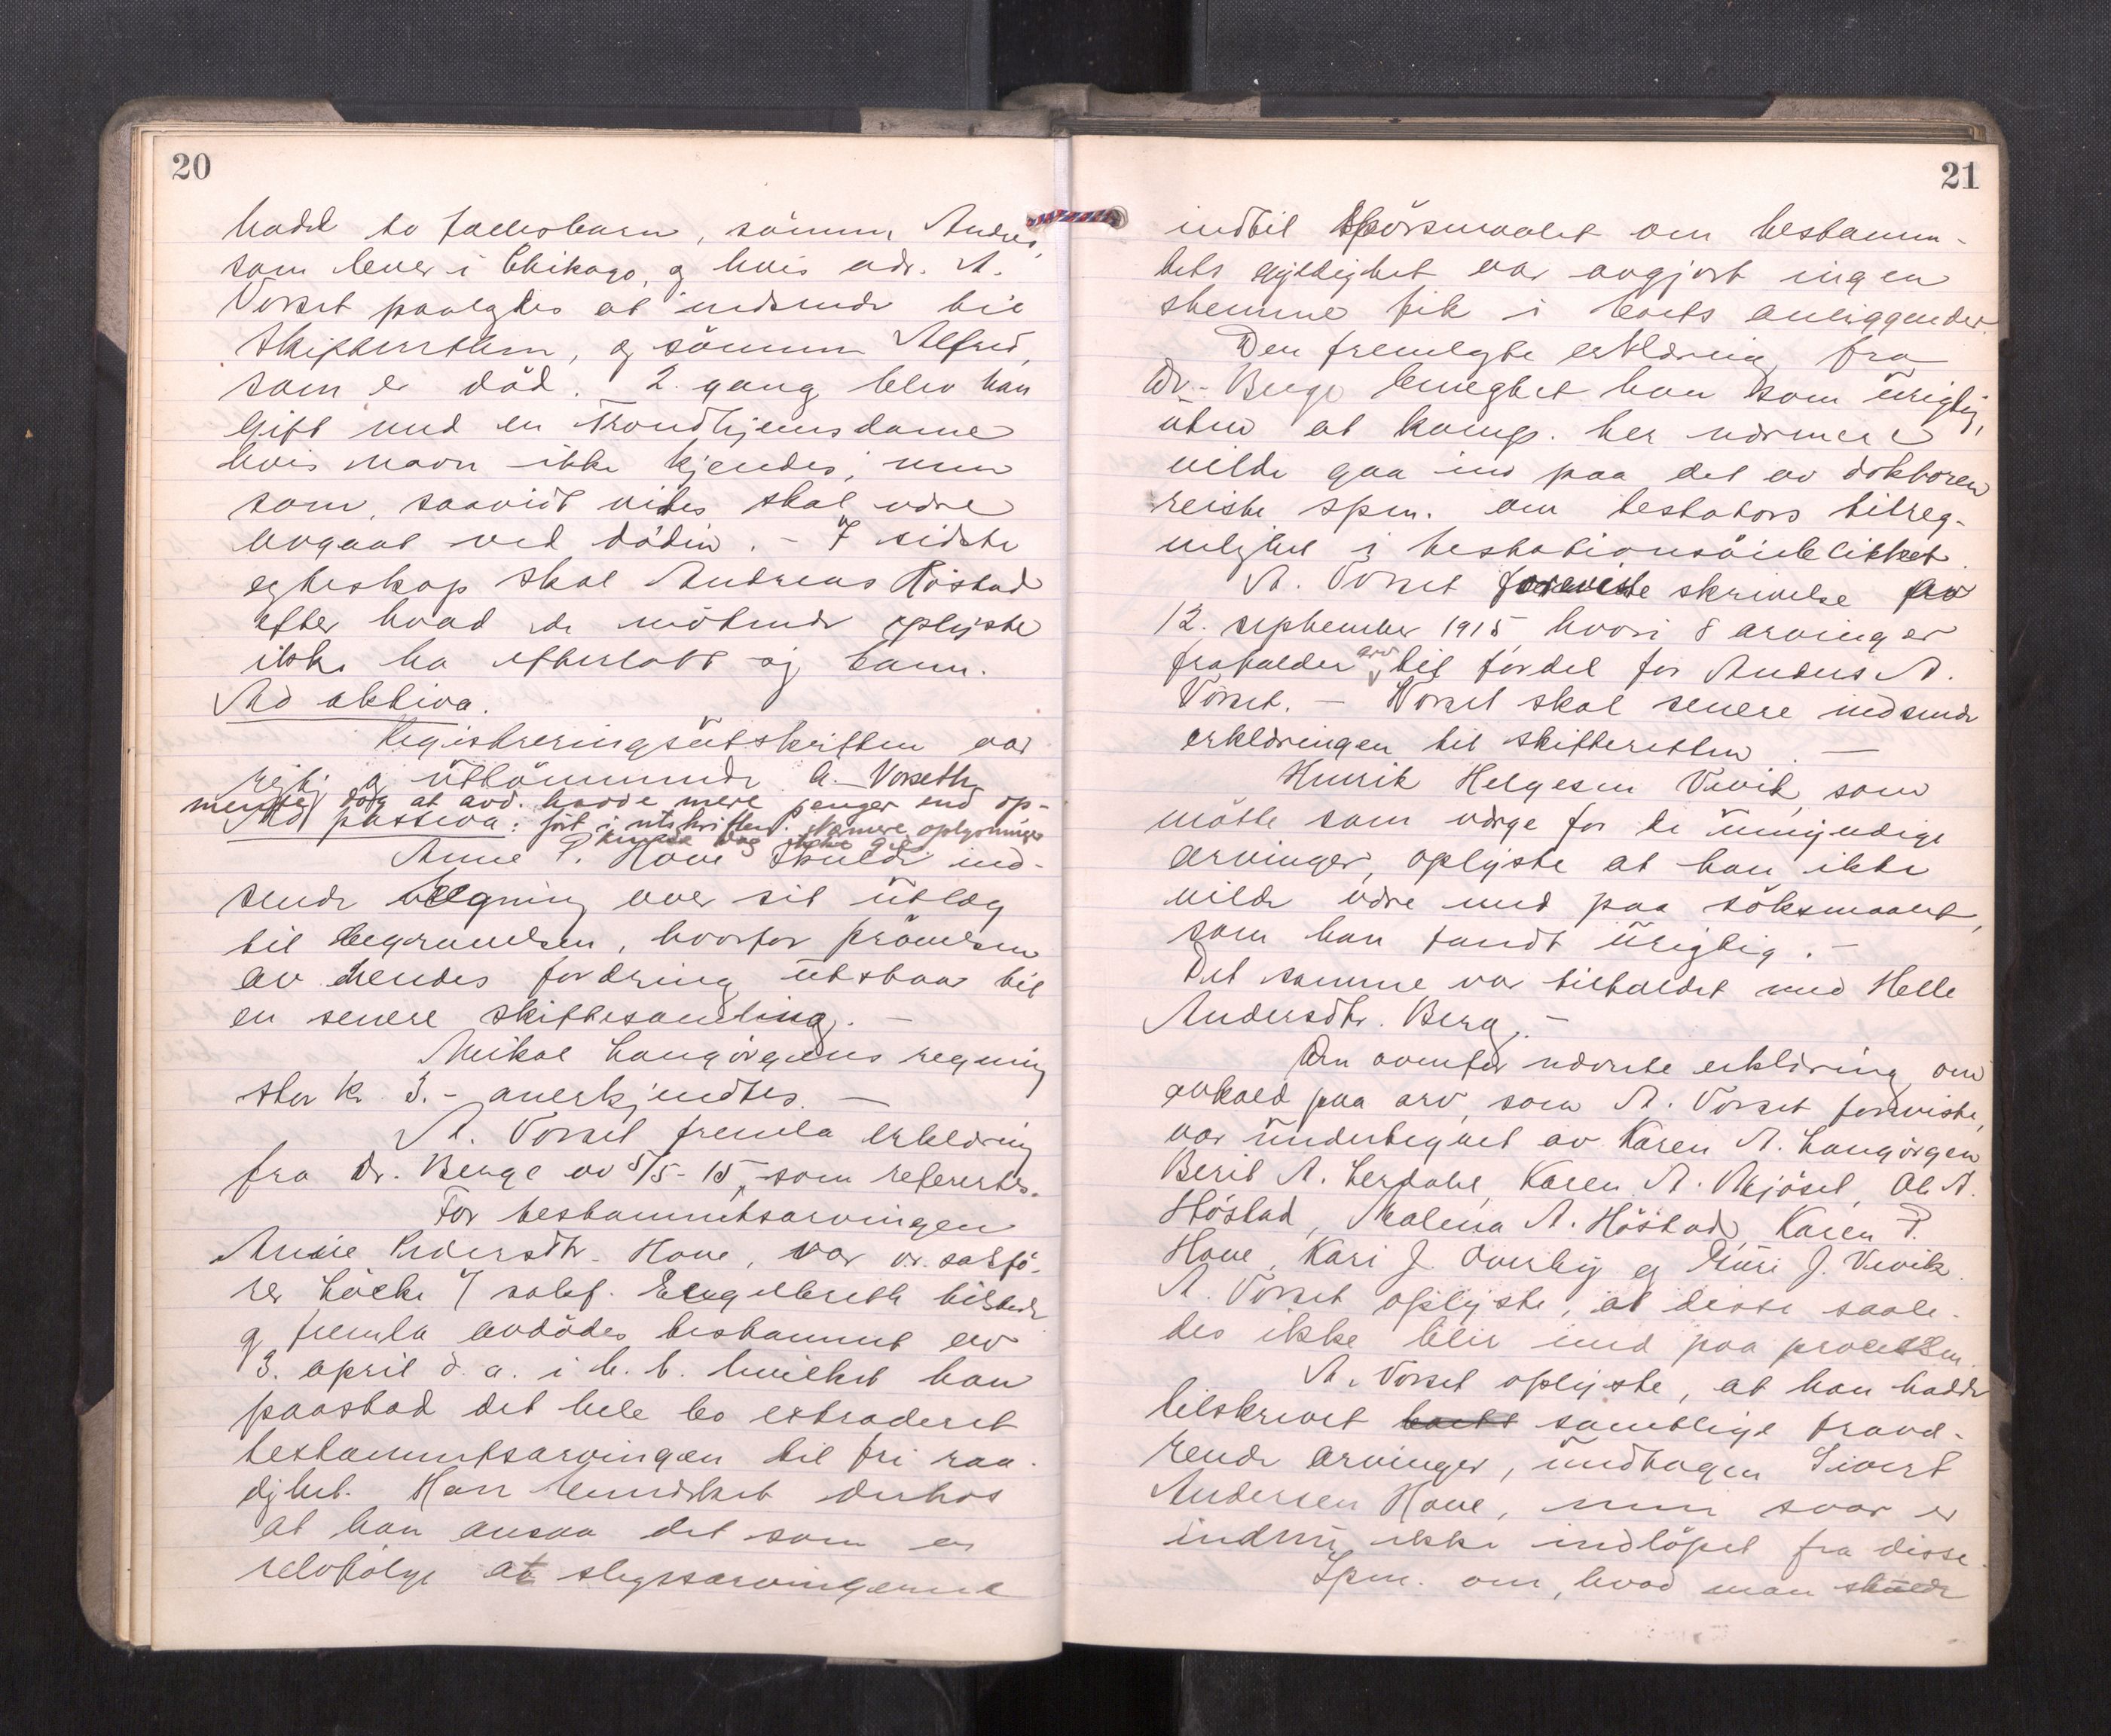 20
hadde to fællesbarn, sønnen Anders,
som lever i Chikago, og hvis adr. A.
Vorset paalagdes at indsende til
skifteretten, og sønnen Alfred,
som er död. 2. gang blev han
gift med en Trondhjemsdame
hvis navn ikke kjendes, men
som, saavidt vides skal være
avgaat ved döden. - I sidste
egteskap skal Andreas Höstad
efter hvad de mötende oplyste
ikke ha efterlatt sig barn.
Ad aktiva.
Registreringsütskriften var
rigtig og üttömmende. A. Vorseth
mente dog at avd. havde mere penger end op-
fört i utskriften. Nærmere oplysninger
kunde dog ikke gis
Ad passiva:
Anne P. Hove skulde ind-
sende regning over sit ütlæg
til begravelsen, hvorfor prövelsen
av hendes fordring ütstaar til
en senere skiftesamling. -
Mikal Langörgens regning
stor kr. 3.- anerkjendtes. -
A. Vorset fremla erklæring
fra Dr. Benge av 5/5-15, som referertes.
For testamentsarvingen
Anne Pedersdtr. Hove, var o.r. sakfö-
rer Löcke v/ sakf. Engelbreth tilstede
og fremla avdödes testament av
3. april d.a. i h. t. hvilket han
paastod det hele bo extraderet
testamentsarvingen til fri raa-
dighet. Han bemerket derhos
at han ansaa det som en
selvfölge at slegtsarvingerne
21
indtil spörsmaalet om testamen-
tets gyldighet var avgjort ingen
stemme fik i boets anliggender.
Den fremlagte erklæring fra
Dr. Benge benegtet han som ürigtig,
üten at komp. her nærmere
vilde gaa ind paa det av doktoren
reiste spm. om testators tilreg-
nelighet i testationsöieblikket.
A. Vorset foreviste skrivelse av
12. september 1915 hvori 8 arvinger
frafalder arv til fordel for Anders A.
Vorset. - Vorset skal senere indsende
erklæringen til skifteretten. -
Henrik Helgesen Vuvik, som
mötte som værge for de ümyndige
arvinger, oplyste at han ikke
vilde være med paa söksmaalet,
som han fandt ürigtig. -
Det samme var tilfældet med Helle
Andersdtr. Berg. -
Den ovenfor nævnte erklæring om
avkald paa arv, som A. Vorset foreviste,
var ündertegnet av Karen A. Langörgen
Berit A. Lerdahl, Karen A. Mjöset, Ole A.
Höstad, Malena A. Höstad, Karen P.
Hove, Kari J. Overby og Güri J. Vuvik.
A. Vorset oplyste, at disse saale-
des ikke blir med paa processen.
A. Vorset oplyste, at han hadde
tilskrevet samtlige fravæ-
rende arvinger, ündtagen Sivert
Andersen Hove, men svar er
indnü ikke indlöpet fra disse.
Spm. om, hvad man skülde